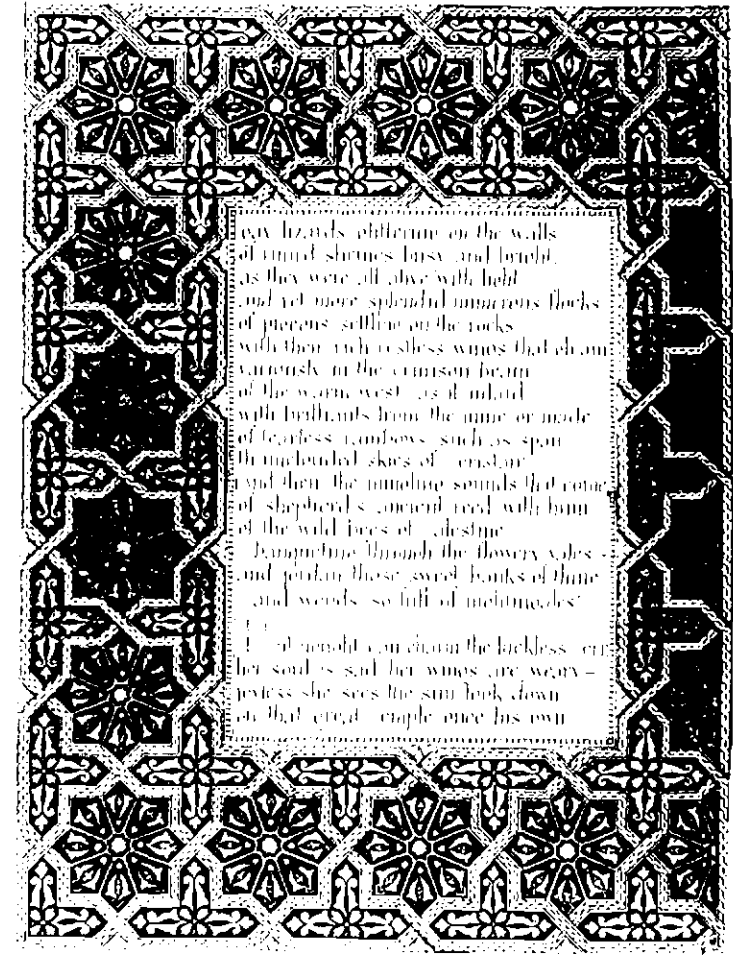 gay lizards glittering on the walls
of ruind shrines busy and bright
as they were all alive with light
and yet more splendid numerous flocks
of pigeons settling on the rocks
with their rich restless wings that gleam
variously in the crimson beam
of the warm west as if inlaid
with brilliants from the mine or made
of tearless rainbows such as span
th unclouded skies of eristan
and then the mingling sounds that come
of shepherd's ancient reed with hum
of the wild bees of alestine
banqueting through the flowery vales
and jordan those sweet banks of thine
and woods so full of nightingales
nought can charm the luckless eri
her soul is sad her wings are weary –
joyless she sees the sun look down
on that great emple once his own